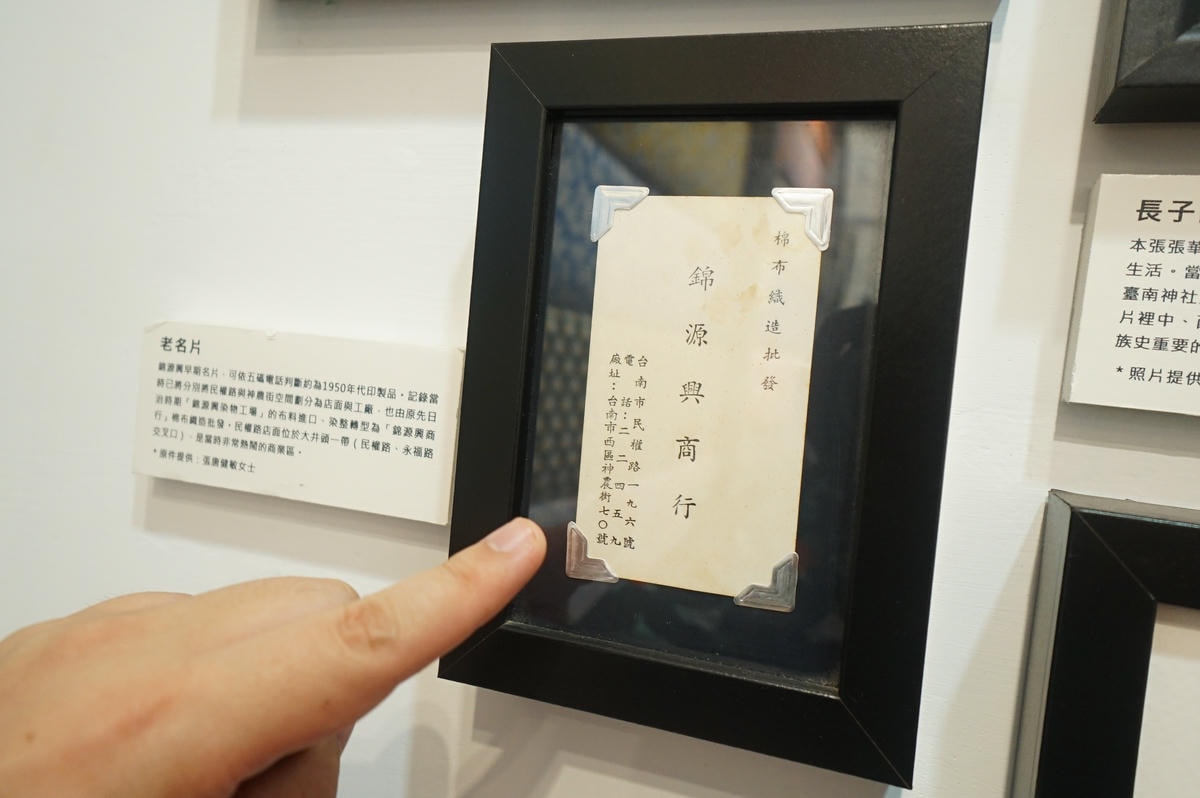 老名片
錦源興早期名片，可依五碼電話判斷約為1950年代印製品。記錄當
時已將分別將民權路與神農街空間劃分為店面與工廠，也由原先日
治時期「錦源興染物工場」的布料進口、染整轉型為「錦源興商
行」棉布織造批發。民權路店面位於大井頭一帶（民權路、永福路
交叉口），是當時非常熱鬧的商業區。
*原件提供：張唐健敏女士
棉布織造批發
錦源興商行
台南市民權路一九六號
電話：二二四五九
廠址：台南市西區神農街七〇號
長子
本張張華
生活。當
臺南神社
片裡中、
族史重要的
*照片提供